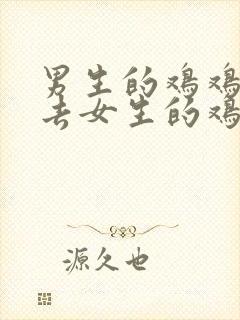 男生的鸡鸡
去女生的鸡
源久也